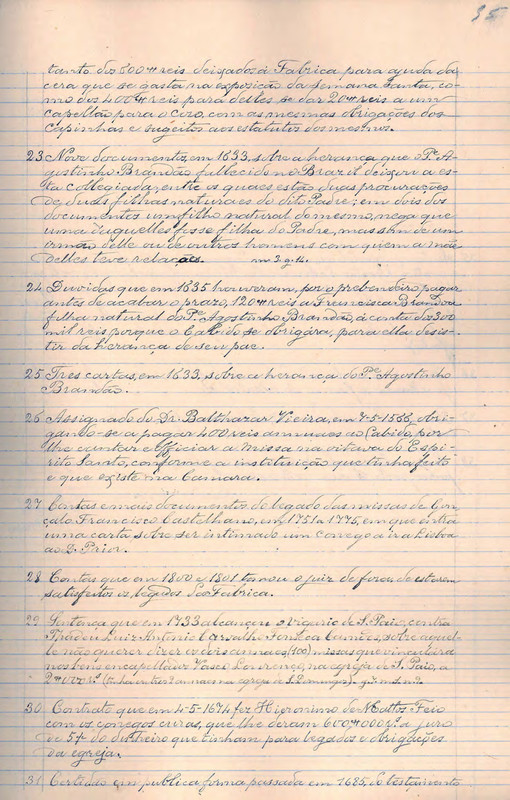 35
tanto dos 500# reis deixados á Fabrica para ajuda da
cera que se gasta na exposição da semana Santa, co-
mo dos 400# reis para delles se dar 20# reis a um
capellão para o Coro, com as mesmas obrigações dos
Capinhas e sugeitos aos estatutos dos mesmos.
23 Nove documentos, em 1633, sobre a herança que o Pe. A-
gostinho Brandão fallecido no Brazil deixou a es-
ta collegiada; entre os quaes estão duas procurações
de duas filhas naturaes do dito Padre; em dois dos
documentos um filho natural do mesmo, nega que
uma d'aquellas fosse filha do Padre, mas sim de um
irmão delle ou de outros homens com quem a mãe
delles teve relações.
24 Duvidas que em 1635 houveram, por o prebendeiro pagar
antes de acabar o prazo, 120# reis a Francisca Brandoa
filha natural do Pe. Agostinho Brandão, á conta dos 300
mil reis porque o Cabido se obrigára, para ella desis-
tir da herança de seu pae.
25 Tres cartas, em 1633, sobre a herança do Pe. Agostinho
Brandão.
26 Assignado do Dr. Balthazar Vieira, em 7-5-1566, obri-
gando-se a pagar 400 reis annuaes ao Cabido, por
lhe cantar e officiar a missa na oitava do Espi-
rito Santo, conforme a instituição que tinha feito
e que existe na Camara.
27 Contas e mais documentos do legado das missas de Gon-
çalo Francisco Castelhano, em 1751 a 1775, em que entra
uma carta sobre ser intimado um conego a ir a Lisboa
ao D. Prior.
28 Contas que em 1800 e 1801 tomou o juiz de fóra de estarem
satisfeitos os legados da Fabrica.
29 Sentença que em 1733 alcançou o vigario de S. Paio, contra
Luiz Antonio Carvalho Fonseca Camões, sobre aquel-
le não querer dizer as cem annaes (100) missas que vinculára
nos bens encapellados Vasco Lourenço, na egreja de S. Paio, a
30 Contrato que em 4-5-1674 fez Hieronimo de Mattos Feio
com os conegos curas, que lhe deram 600#000 rs. a juro
de 5% do dinheiro que tinham para legados e obrigações
da egreja.
31 Certidão em publica forma passada em 1685, do testamento